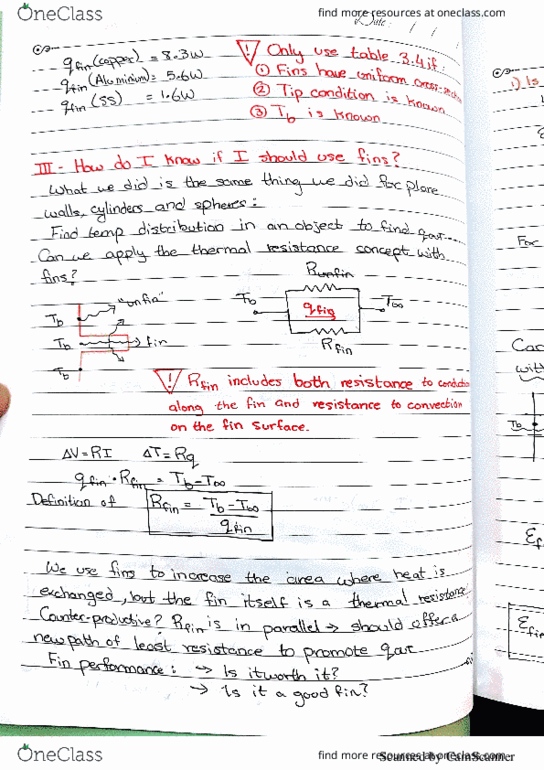 OneClass
find more resources at oneclass.com
Date: / /
qfin (copper) = 8.3W
qfin (Aluminium) = 5.6W
qfin (SS) = 1.6W
! Only use table 3.4 if:
① Fins have uniform cross-section
② Tip condition is known
③ Tb is known
III - How do I know if I should use fins?
What we did is the same thing we did for plane
walls, cylinders and spheres:
Find temp distribution in an object to find
Can we apply the thermal resistance concept with
fins?
Runfin
Tb
T∞
qfin
Rfin
Tb
"unfin"
Tb
fin
Tb
! Rfin includes both resistance to conduction
along the fin and resistance to convection
on the fin surface.
ΔV = RI ΔT = Rq
qfin · Rfin = Tb - T∞
Definition of Rfin = Tb - T∞
qfin
We use fins to increase the area where heat is
exchanged, but the fin itself is a thermal resistance
Counter-productive? Rfin is in parallel → should offer a
new path of least resistance to promote
Fin performance: → Is it worth it?
→ Is it a good fin?
i) Is
For
Tb
OneClass
find more resources at oneclass.com
Scanned by CamScanner